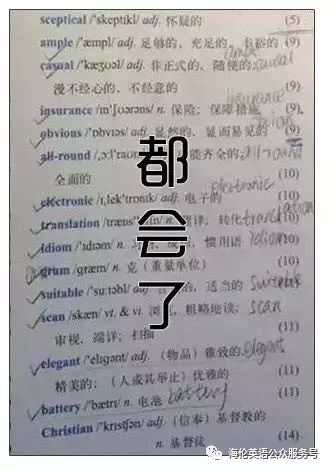 sceptical /'skeptɪkl/ adj. 怀疑的 (5)
ample /'æmpl/ adj. 足够的、充足的、富裕的 (9)
casual /'kæʒʊəl/ adj. 非正式的，随便的; casual
漫不经心的、不经意的 (9)
insurance /ɪn'ʃʊərəns/ n. 保险；保障措施 (9) insurance
obvious /'ɒbvɪəs/ adj. 显然的，显而易见的 (9)
all-round /,ɔ:l'raʊnd/ 功能齐全的; all-round
全面的 (10)
electronic /ɪ,lek'trɒnɪk/ adj. 电子的 (10) electronic
translation /træns'leɪʃn/ 翻译；转化 translation (10)
idiom /'ɪdɪəm/ n. 惯用语 idiom (10)
gram /græm/ n. 克（重量单位） (10)
suitable /'su:təbl/ 适当的 suitable (10)
scan /skæn/ vt. & vi. 浏览，粗略地读； scan
审视，端详；扫描 (11)
elegant /'elɪgənt/ adj. （物品）雅致的, elegant
精美的；（人或其举止）优雅的 (11)
battery /'bætrɪ/ n. 电池 battery (11)
Christian /'krɪstʃən/ adj. （信奉）基督教的
n. 基督徒 (14)
都会了
海伦英语公众服务号